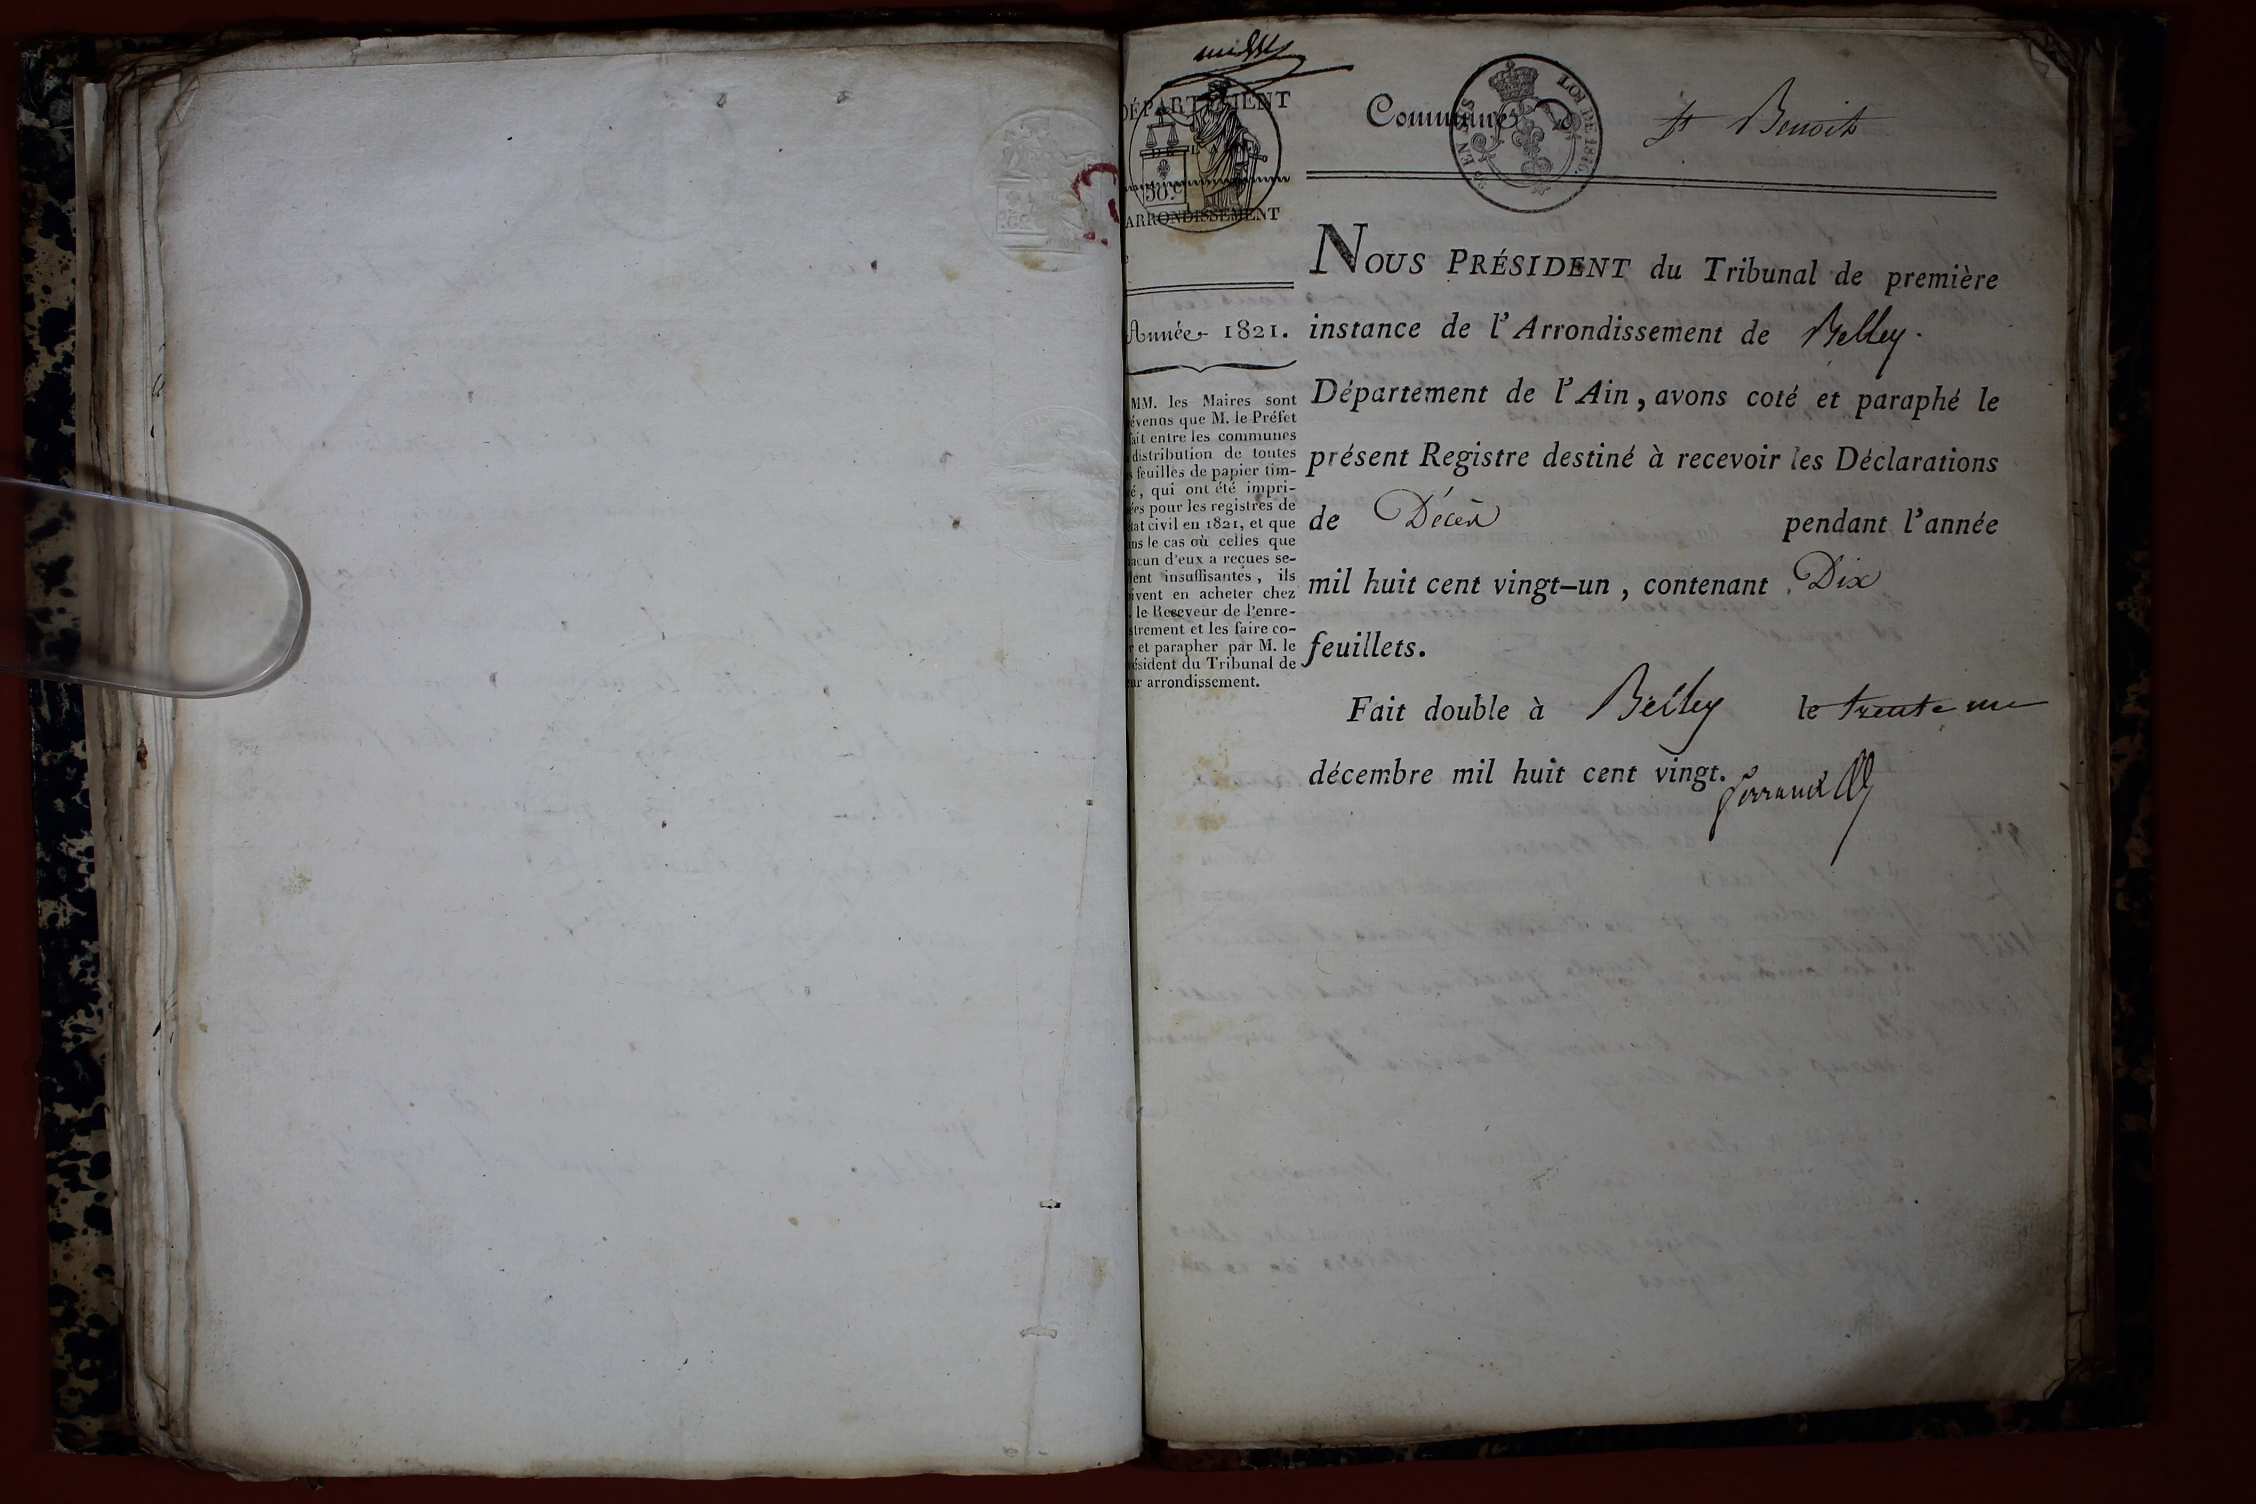 DÉPARTEMENT
DE L'A
50.C
ARRONDISSEMENT
Année 1821.
MM. les Maires sont
évenus que M. le Préfet
fait entre les communes
distribution de toutes
s feuilles de papier tim-
é, qui ont été impri-
ées pour les registres de
état civil en 1821, et que
ns le cas où celles que
acun d'eux a reçues se-
ient insuffisantes, ils
ivent en acheter chez
. le Receveur de l'enre-
strement et les faire co-
r et parapher par M. le
ésident du Tribunal de
ur arrondissement.
Commune de St Benoit
LOI DE 1816.
EN SUS
NOUS PRÉSIDENT du Tribunal de première
instance de l'Arrondissement de Belley.
Département de l'Ain, avons coté et paraphé le
présent Registre destiné à recevoir les Déclarations
de Décès pendant l'année
mil huit cent vingt-un, contenant Dix
feuillets.
Fait double à Belley le trente un
décembre mil huit cent vingt.